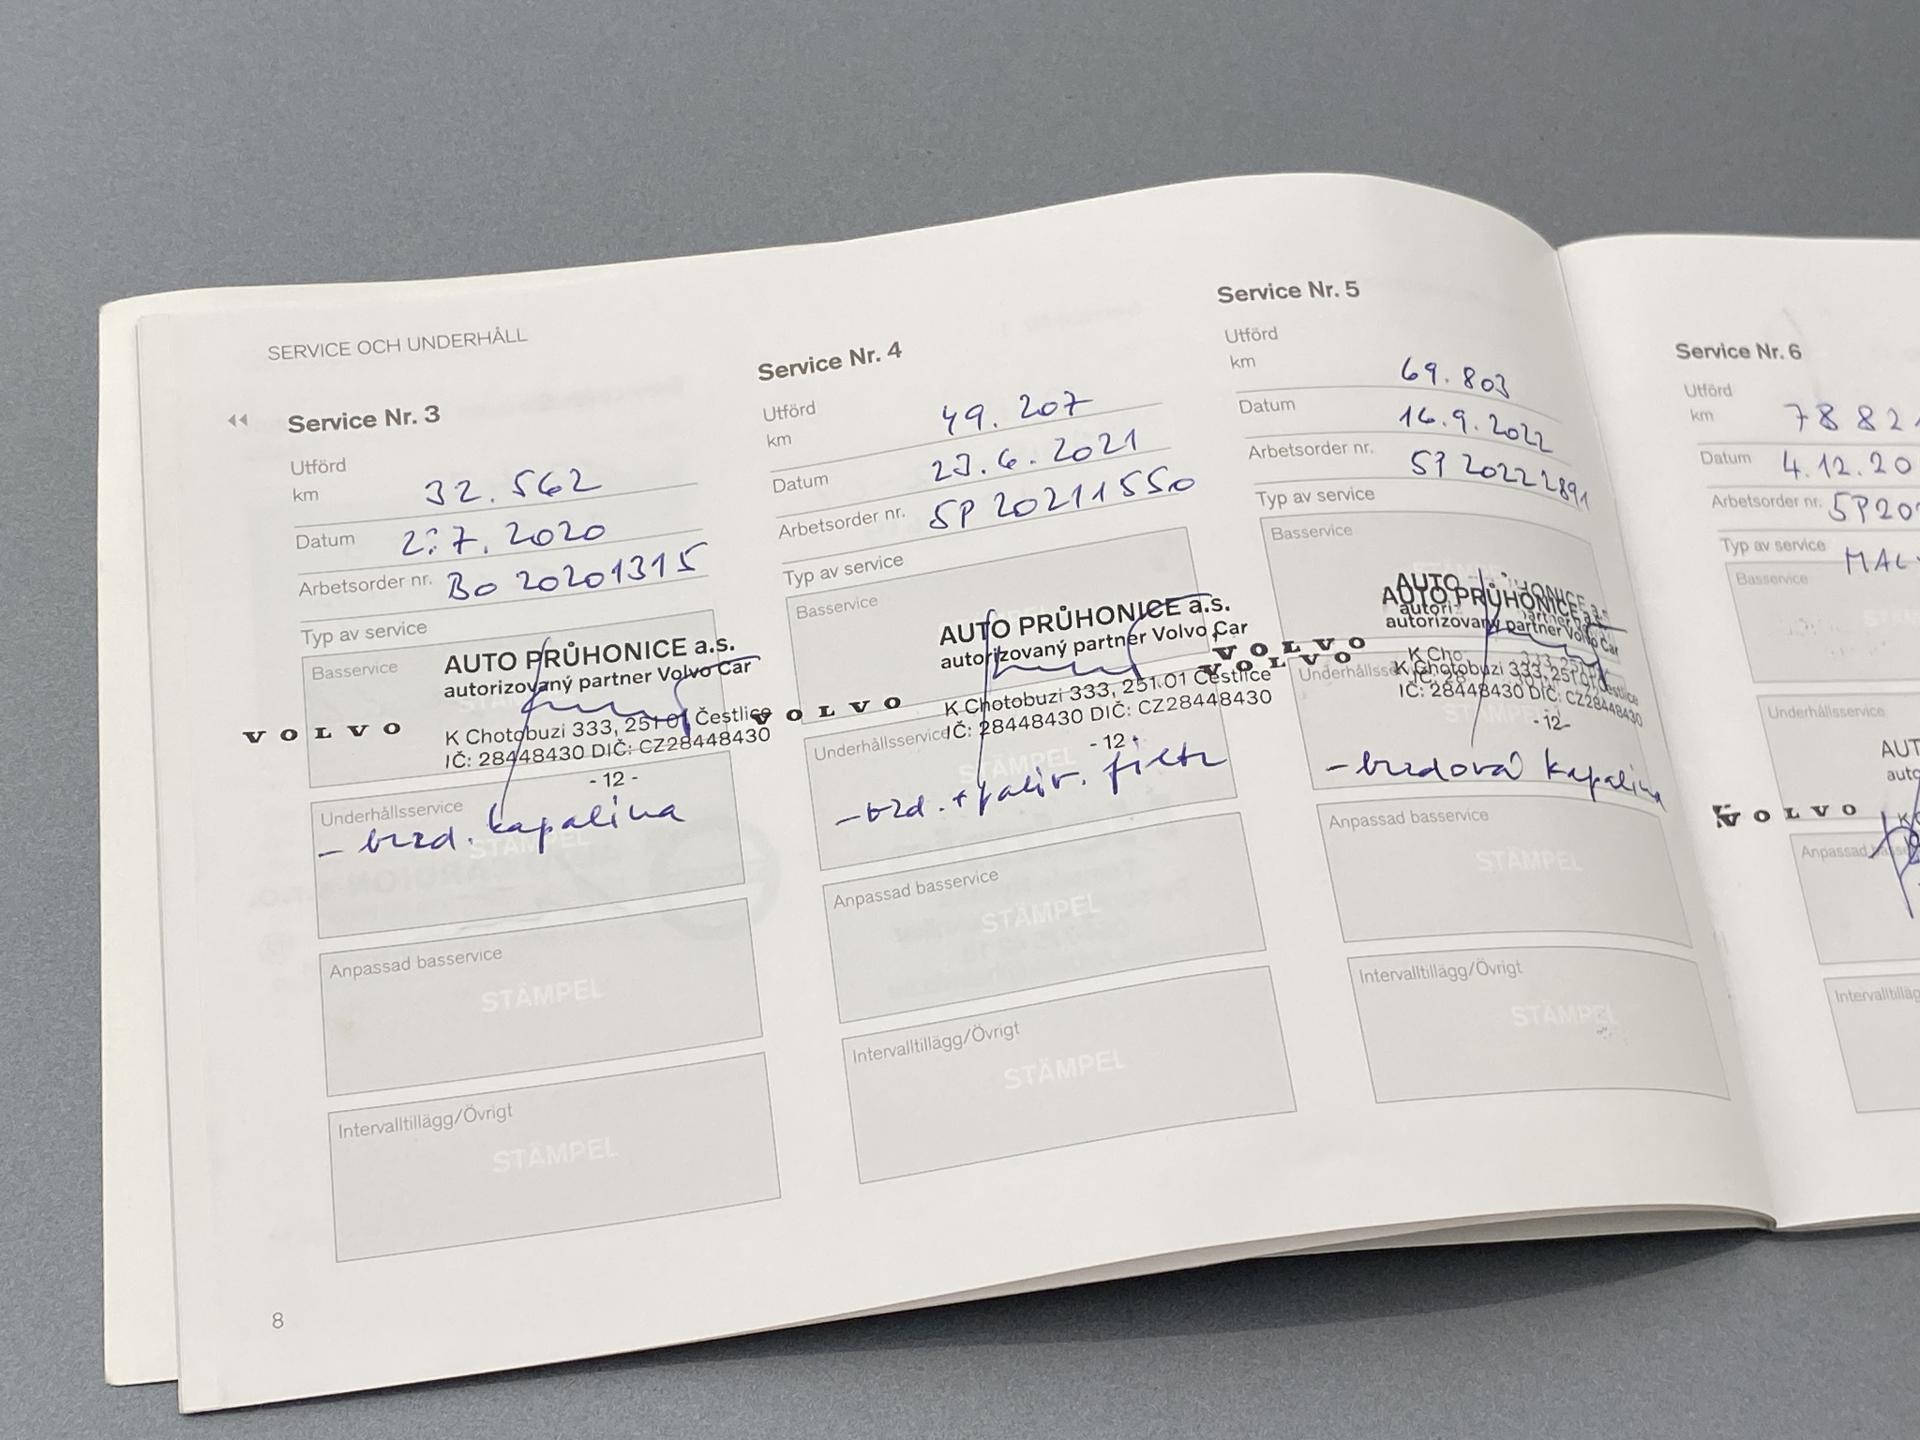 SERVICE OCH UNDERHÅLL
Service Nr. 3
Utförd
km 32.562
Datum 2.7.2020
Arbetsorder nr. BO 20201315
Typ av service
Basservice
AUTO PRŮHONICE a.s.
autorizovaný partner Volvo Car
VOLVO
K Chotobuzi 333, 251 01 Čestlice
IČ: 28448430 DIČ: CZ28448430
- 12 -
Underhållsservice
- brzd. kapalina
STÄMPEL
Anpassad basservice
STÄMPEL
Intervalltillägg/Övrigt
STÄMPEL
8
Service Nr. 4
Utförd
km 49.207
Datum 23.6.2021
Arbetsorder nr. SP 20211550
Typ av service
Basservice
AUTO PRŮHONICE a.s.
autorizovaný partner Volvo Car
VOLVO
K Chotobuzi 333, 251 01 Čestlice
IČ: 28448430 DIČ: CZ28448430
- 12 -
Underhållsservice
STÄMPEL
- brzd. + paliv. filtr
Anpassad basservice
STÄMPEL
Intervalltillägg/Övrigt
STÄMPEL
Service Nr. 5
Utförd
km 69.803
Datum 16.9.2022
Arbetsorder nr. SP 20222891
Typ av service
Basservice
AUTO PRŮHONICE a.s.
autorizovaný partner Volvo Car
VOLVO
VOLVO
K Chotobuzi 333, 251 01 Čestlice
IČ: 28448430 DIČ: CZ28448430
- 12 -
Underhållsservice
STÄMPEL
- brzdová kapalina
Anpassad basservice
STÄMPEL
Intervalltillägg/Övrigt
STÄMPEL
Service Nr. 6
Utförd
km 7882
Datum 4.12.20
Arbetsorder nr. SP20
Typ av service
Basservice
Underhållsservice
VOLVO
Anpassad